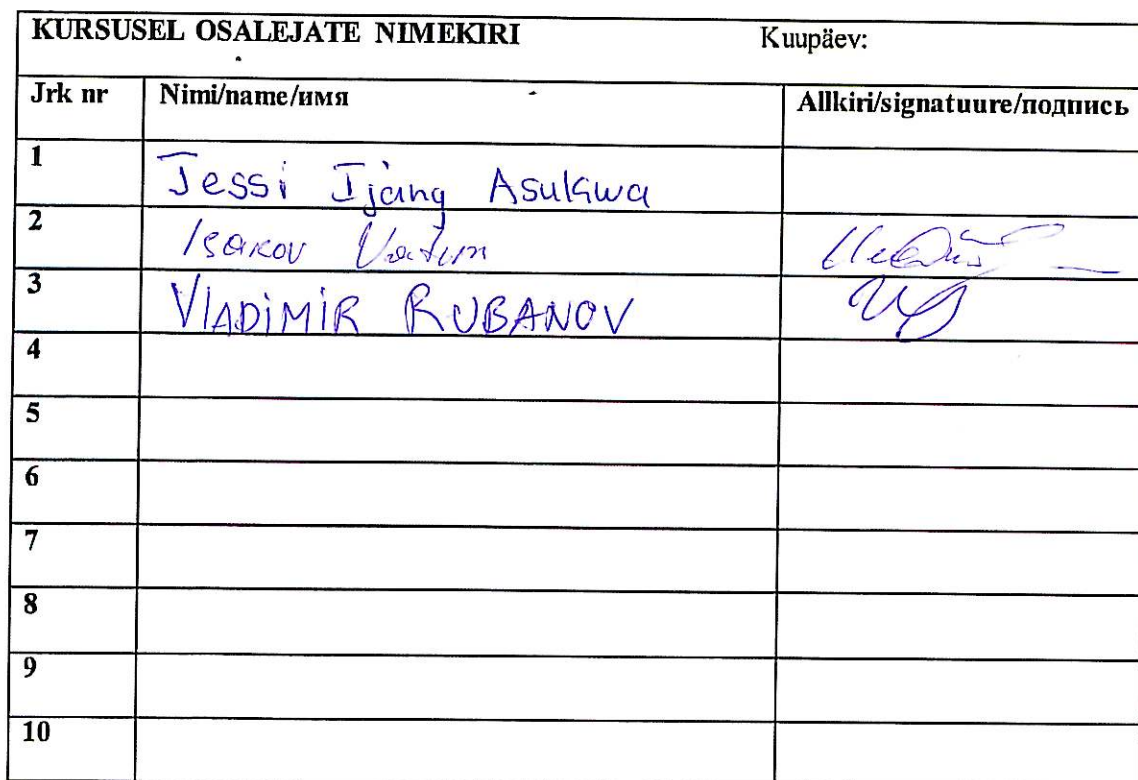 KURSUSEL OSALEJATE NIMEKIRI Kuupäev:
Jrk nr Nimi/name/имя Allkiri/signatuure/подпись
1 Jessi Ijang
2 Isakov Vadim
3 VlADiMiR RUBANOV
4
5
6
7
8
9
10